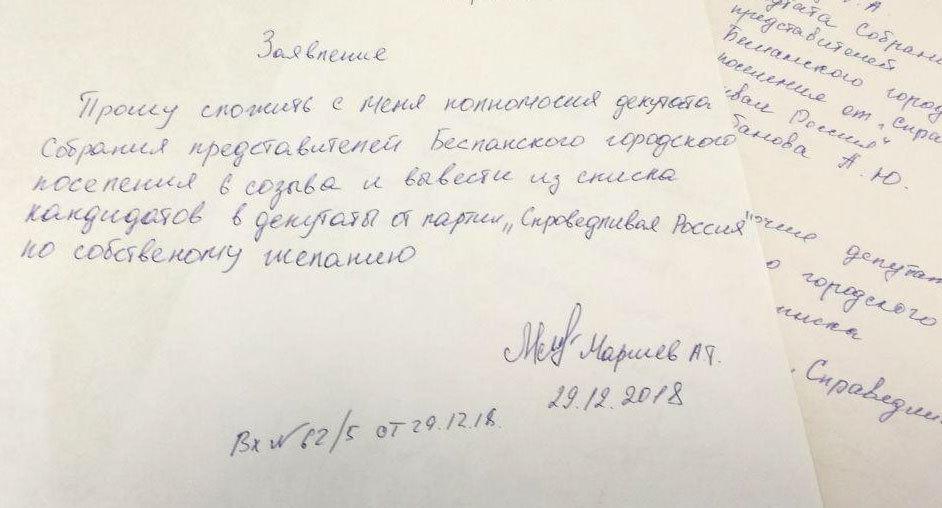 Заявление
Прошу сложить с меня полномосия декутата
Собрания представителей Бесланского городского
поселения в созыва и вывести из списка
кандидатов в депутаты от партии „Справедливая Россия"
по собственому желанию
Маршев А.Т.
29.12.2018
Вх № 62/5 от 29.12.18.
А
утата Собрани
представителей
Бесланского город
поселение от „Спра
Россия"
А.Ю.
очие депутат
о городского
писка
Справедли